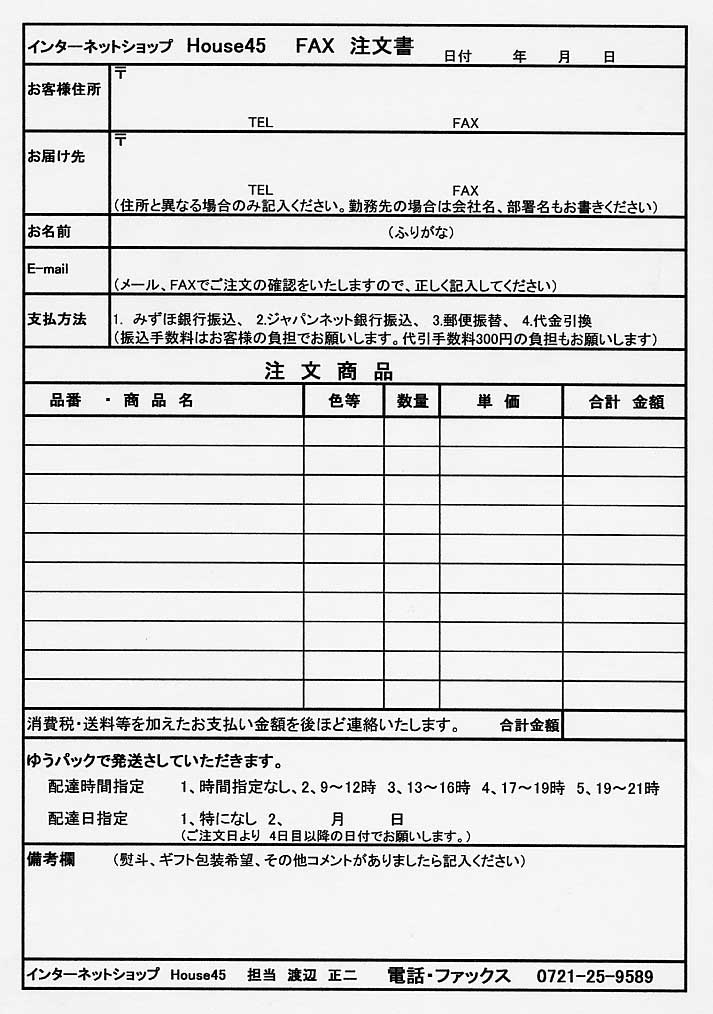 インターネットショップ House45 FAX 注文書 日付 年 月 日
お客様住所 〒
TEL FAX
お届け先 〒
TEL FAX
(住所と異なる場合のみ記入ください。勤務先の場合は会社名、部署名もお書きください)
お名前 (ふりがな)
E-mail
(メール、FAXでご注文の確認をいたしますので、正しく記入してください)
支払方法 1. みずほ銀行振込、 2.ジャパンネット銀行振込、 3.郵便振替、 4.代金引換
(振込手数料はお客様の負担でお願いします。代引手数料300円の負担もお願いします)
注 文 商 品
品番 ・ 商 品 名 色等 数量 単 価 合計 金額
消費税・送料等を加えたお支払い金額を後ほど連絡いたします。 合計金額
ゆうパックで発送さしていただきます。
配達時間指定 1、時間指定なし、2、9～12時 3、13～16時 4、17～19時 5、19～21時
配達日指定 1、特になし 2、 月 日
(ご注文日より 4日目以降の日付でお願いします。)
備考欄 (熨斗、ギフト包装希望、その他コメントがありましたら記入ください)
インターネットショップ House45 担当 渡辺 正二 電話・ファックス 0721-25-9589